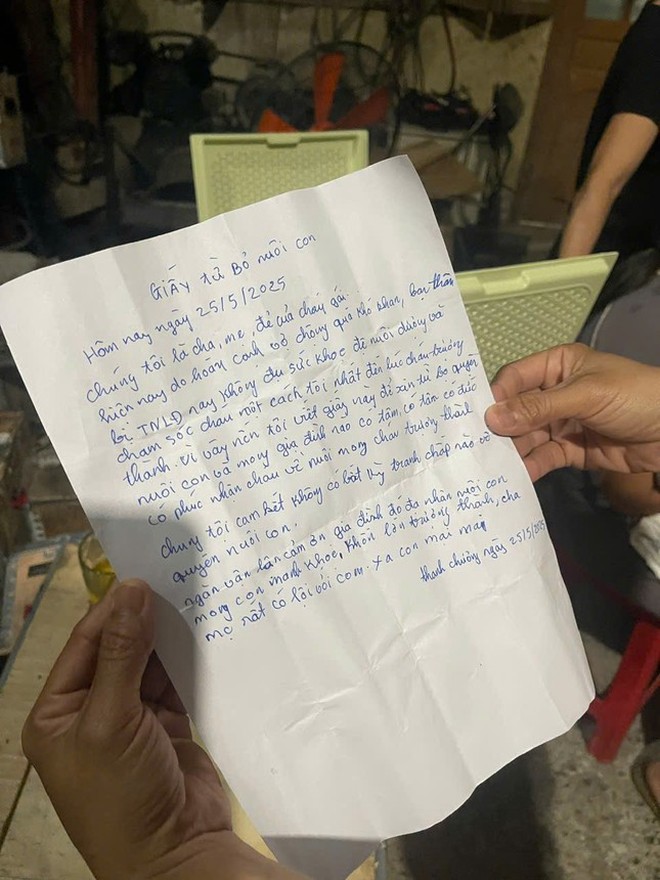 GIẤY TỪ BỎ nuôi con
Hôm nay ngày 25/5/2025
chúng tôi là cha, mẹ, đẻ của cháy gái.
hiện nay do hoàn cảnh vợ chồng quá khó khăn, bạn thân
bị TNLĐ nay không đủ sức khỏe để nuôi dưỡng và
chăm sóc cháu một cách tôi nhất đến lúc cháu trưởng
thành. vì vậy nên tôi viết giấy này để xin từ bỏ quyền
nuôi con và mong gia đình nào có tâm, có tâm có đức
có phúc nhân cháu về nuôi mong cháu trưởng thành
chúng tôi cam kết không có bất kỳ tranh chấp nào về
quyền nuôi con.
ngàn vận lần cảm ơn gia đình đó đã nhận nuôi con
mong con mạnh khỏe, khôn lớn trưởng thành, cha
mẹ rất có lội với con. xa con mại mại
thanh chương ngày 25/5/2025